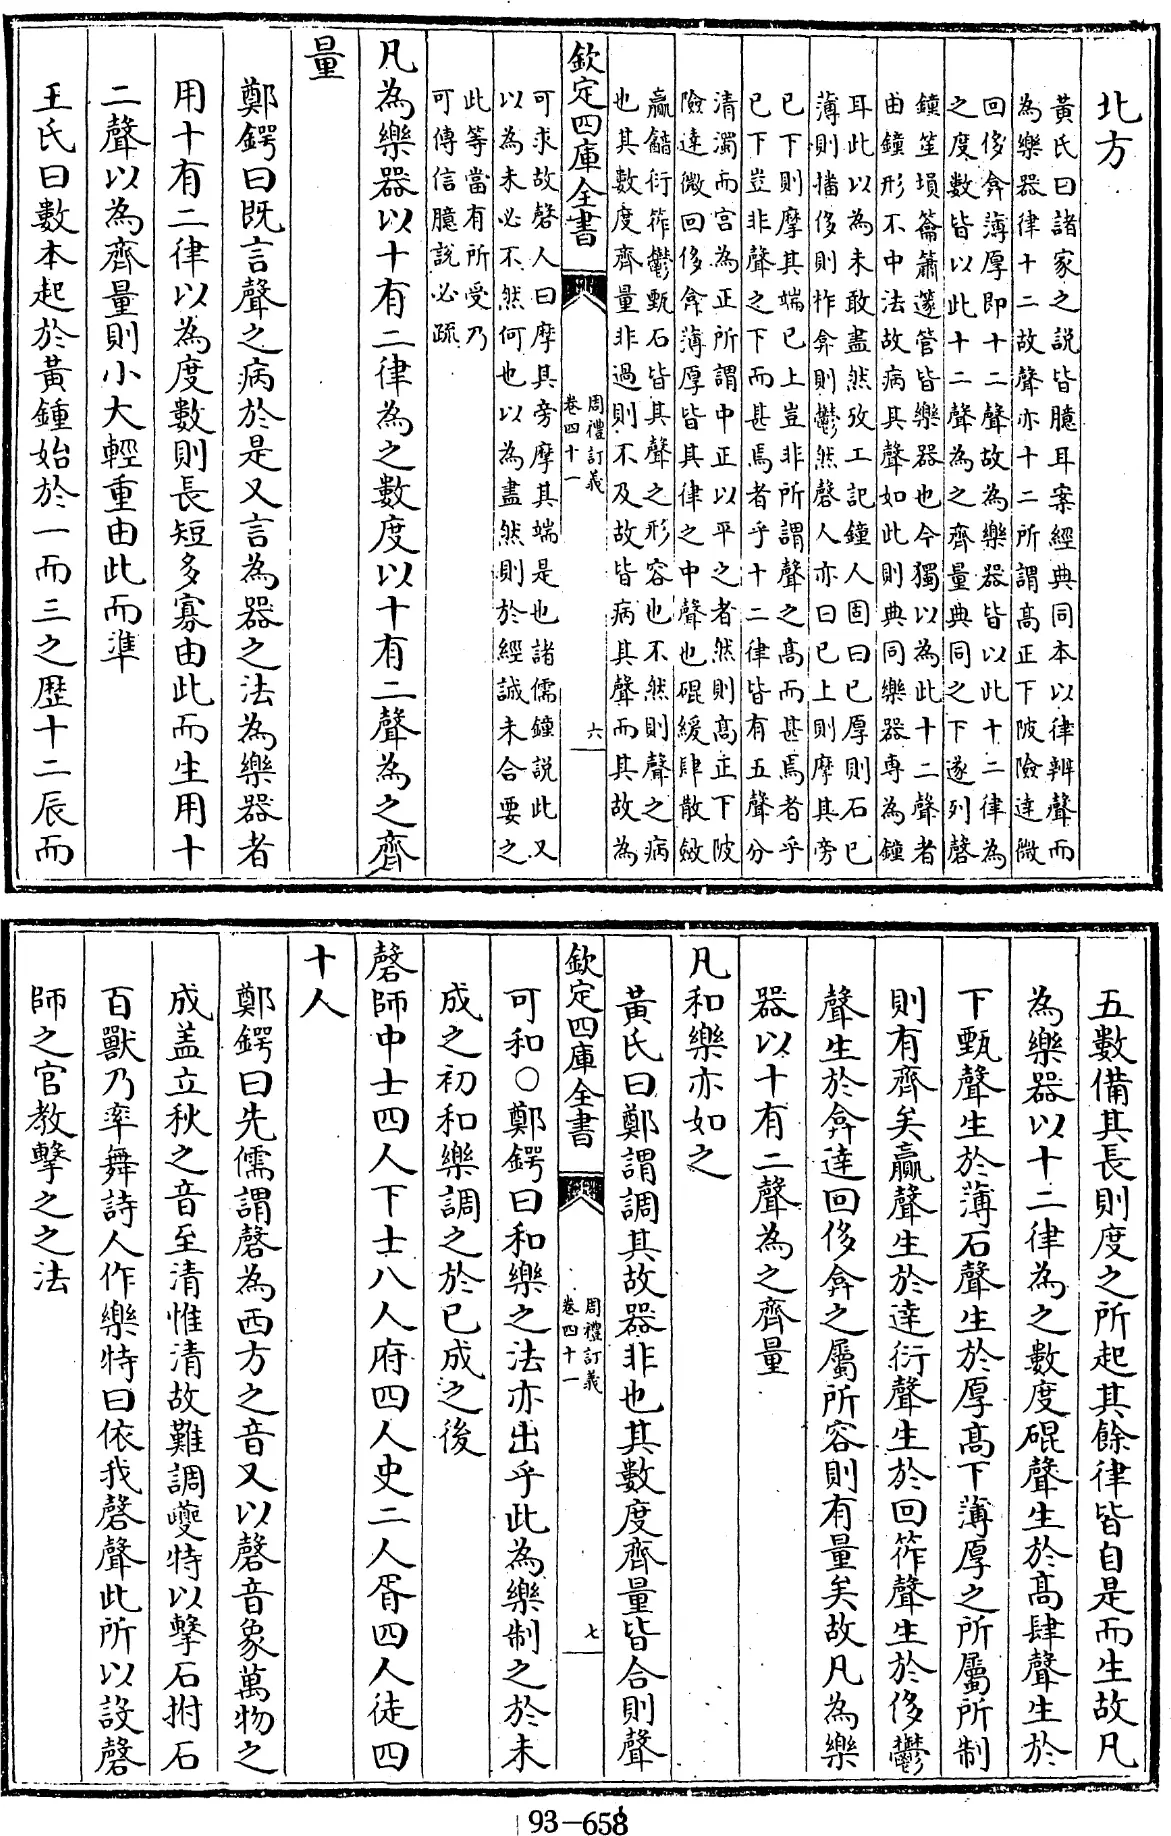 北方
黃氏曰諸家之説皆臆耳案經典同本以律辨聲而
為樂器律十二故聲亦十二所謂高正下陂險達微
回侈弇薄厚即十二聲故為樂器皆以此十二律為
之度數皆以此十二聲為之齊量典同之下遂列磬
鐘笙塤籥簫篴管皆樂器也今獨以為此十二聲者
由鐘形不中法故病其聲如此則典同樂器専為鐘
耳此以為未敢盡然攷工記鐘人固曰已厚則石已
薄則播侈則柞弇則鬱然磬人亦曰已上則摩其旁
已下則摩其端已上豈非所謂聲之高而甚焉者乎
已下豈非聲之下而甚焉者乎十二律皆有五聲分
清濁而宫為正所謂中正以平之者然則高正下陂
險達微回侈弇薄厚皆其律之中聲也硍緩肆散斂
贏韽衍筰鬱甄石皆其聲之形容也不然則聲之病
也其數度齊量非過則不及故皆病其聲而其故為
欽定四庫全書
周禮訂義
卷四十一
六
可求故磬人曰摩其旁摩其端是也諸儒鐘説此又
以為未必不然何也以為盡然則於經誠未合要之
此等當有所受乃
可傳信臆説必疏
凡為樂器以十有二律為之數度以十有二聲為之齊
量
鄭鍔曰既言聲之病於是又言為器之法為樂器者
用十有二律以為度數則長短多寡由此而生用十
二聲以為齊量則小大輕重由此而準
王氏曰數本起於黃鍾始於一而三之歴十二辰而
五數備其長則度之所起其餘律皆自是而生故凡
為樂器以十二律為之數度硍聲生於高肆聲生於
下甄聲生於薄石聲生於厚高下薄厚之所屬所制
則有齊矣贏聲生於達衍聲生於回筰聲生於侈鬱
聲生於弇達回侈弇之屬所容則有量矣故凡為樂
器以十有二聲為之齊量
凡和樂亦如之
黃氏曰鄭謂調其故器非也其數度齊量皆合則聲
欽定四庫全書
周禮訂義
卷四十一
七
可和○鄭鍔曰和樂之法亦出乎此為樂制之於未
成之初和樂調之於已成之後
磬師中士四人下士八人府四人史二人胥四人徒四
十人
鄭鍔曰先儒謂磬為西方之音又以磬音象萬物之
成盖立秋之音至清惟清故難調夔特以擊石拊石
百獸乃率舞詩人作樂特曰依我磬聲此所以設磬
師之官教擊之之法
193-658